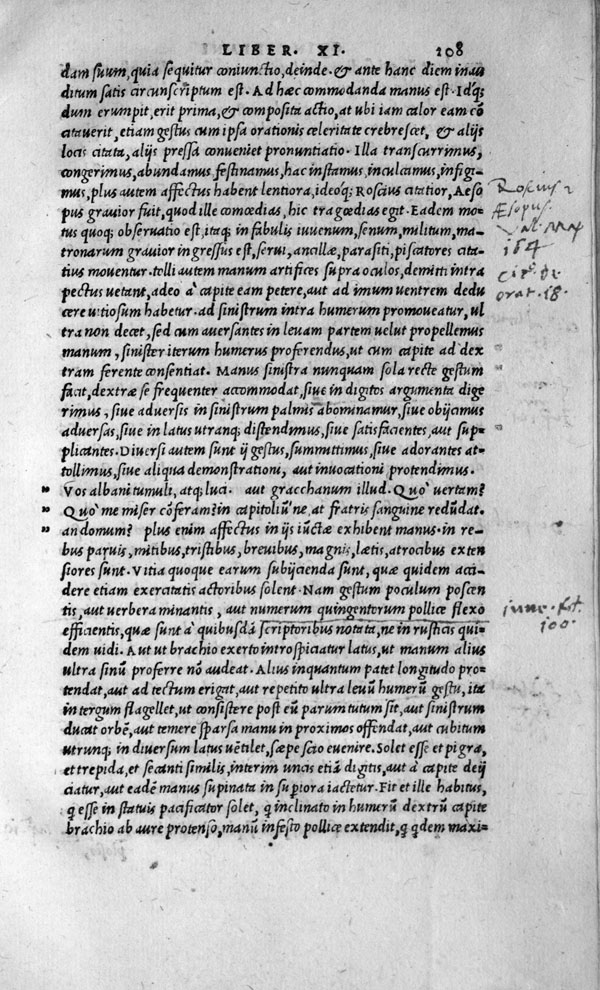 LIBER. XI. 208
dam suum, quia sequitur coniunctio, deinde. & ante hanc diem inau
ditum satis circunscriptum est. Ad hæc commodanda manus est. Idq;
dum erumpit, erit prima, & composita actio, at ubi iam calor eam cō
citauerit, etiam gestus cum ipsa orationis celeritate crebrescet, & alijs
locis citata, alijs pressa conueniet pronuntiatio. Illa transcurrimus,
congerimus, abundamus, festinamus, hac instamus, inculcamus, infigi-
mus, plus autem affectus habent lentiora, ideoq; Roscius citatior, Aeso
pus grauior fuit, quod ille comœdias, hic tragœdias egit. Eadem mo-
tus quoq; obseruatio est, itaq; in fabulis iuuenum, senum, militum, ma-
tronarum grauior ingressus est, serui, ancillæ, parasiti, piscatores cita-
tius mouentur. tolli autem manum artifices supra oculos, demitti intra
pectus uetant, adeo à capite eam petere, aut ad imum uentrem dedu
cere uitiosum habetur. ad sinistrum intra humerum promoueatur, ul
tra non decet, sed cum auersantes in leuam partem uelut propellemus
manum, sinister iterum humerus proferendus, ut cum capite ad dex
tram ferente consentiat. Manus sinistra nunquam sola recte gestum
facit, dextræ se frequenter accommodat, siue in digitos argumenta dige
rimus, siue aduersis in sinistrum palmis abominamur, siue obijcimus
aduersas, siue in latus utranq; distendimus, siue satisfacientes, aut sup-
plicantes. Diuersi autem sunt ij gestus, summittimus, siue adorantes at-
tollimus, siue aliqua demonstrationi, aut inuocationi protendimus.
" Vos albani tumuli, atq; luci. aut gracchanum illud. Quò uertam?
" Quò me miser cōferam? in capitoliū'ne, at fratris sanguine redūdat.
" an domum? plus enim affectus in ijs iunctæ exhibent manus. in re-
bus paruis, mitibus, tristibus, breuibus, magnis, lætis, atrocibus exten
siores sunt. Vitia quoque earum subijcienda sunt, quæ quidem acci-
dere etiam exercitatis actoribus solent. Nam gestum poculum poscen
tis, aut uerbera minantis, aut numerum quingentorum pollice flexo
efficientis, quæ sunt à quibusdā scriptoribus notata, ne in rusticis qui-
dem uidi. Aut ut brachio exerto introspiciatur latus, ut manum alius
ultra sinū proferre nō audeat. Alius inquantum patet longitudo pro-
tendat, aut ad tectum erigat, aut repetito ultra leuū humerū gestu, ita
in tergum flagellet, ut consistere post eū parum tutum sit, aut sinistrum
ducat orbē, aut temere sparsa manu in proximos offendat, aut cubitum
utrunq; in diuersum latus uētilet, sæpe scio euenire. Solet esse et pigra,
et trepida, et secanti similis, interim uncis etiā digitis, aut à capite deij
ciatur, aut eadē manus supinata in supiora iactetur. Fit et ille habitus,
q esse in statuis pacificator solet, q inclinato in humerū dextrū capite
brachio ab aure protenso, manū infesto pollice extendit, q qdem maxi-
Roscius
Æsopus.
Val. Max
164
Cic. de
orat. 58.
iuue. sat.
100.